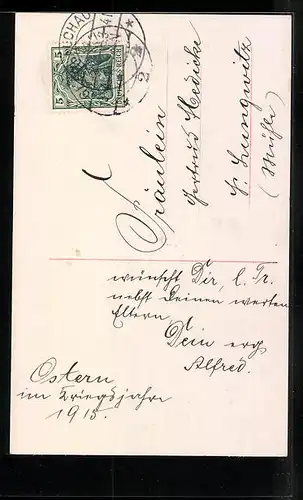 5
Fräulein
Gertrud Hedicke
Lungwitz
(Mühle)
wünscht Dir, l. Tr.
nebst Deinen werten
Eltern
Dein erg.
Alfred.
Ostern
im Kriegsjahre
1915.